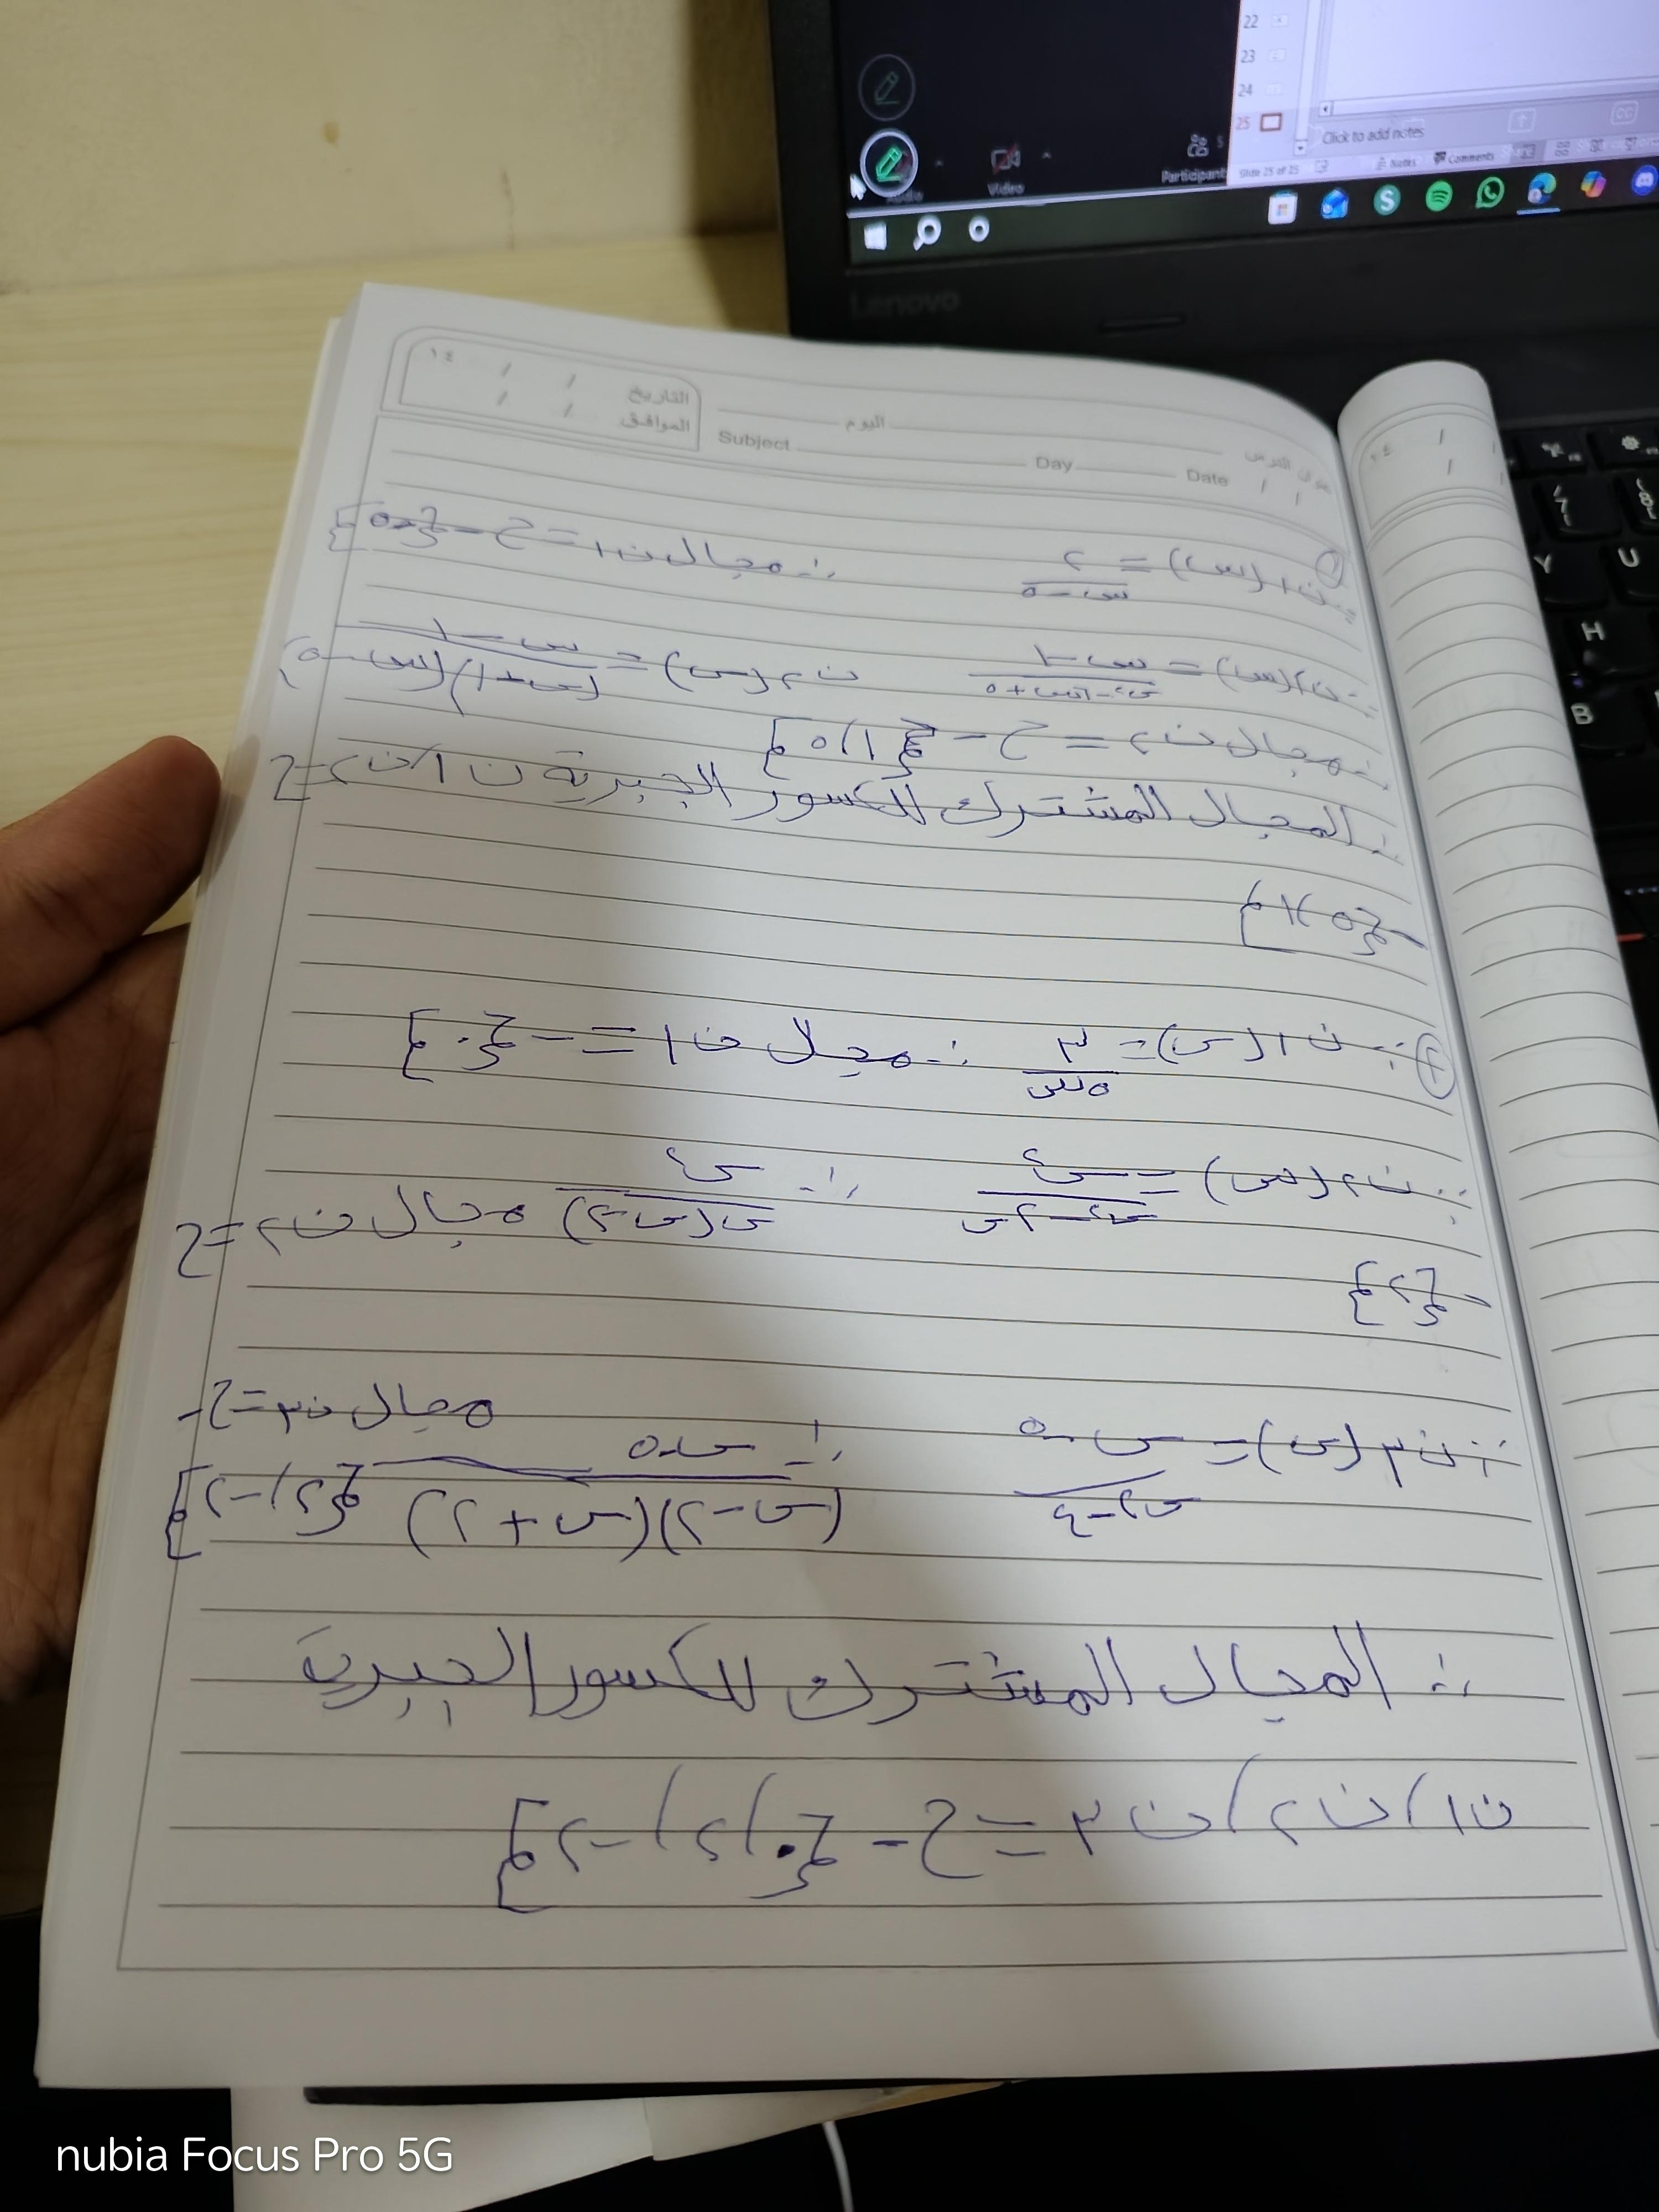 22
23
24
25
Click to add notes
Notes Comments
Slide 25 of 25
Participants 5
Video
Audio
Lenovo
Y U
H
B
١٤ / / التاريخ
/ / الموافق
اليوم
Subject Day Date
① ∵ ن١(س) = ٢/(س-٥) ∴ مجال ن١ = ح - {٥}
∵ ن٢(س) = (س-١)/(س٢-٦س+٥) ن٢(س) = (س-١)/((س-١)(س-٥))
∴ مجال ن٢ = ح - {١، ٥}
∴ المجال المشترك للكسور الجبرية ن١، ن٢ = ح
- {٥، ١}
② ∵ ن١(س) = ٣/٥س ∴ مجال ن١ = - {٠}
∵ ن٢(س) = س٤/(س٢-٢س) ∴ س٤/(س(س-٢)) مجال ن٢ = ح
- {٢}
∵ ن٣(س) = (س-٥)/(س٢-٤) ∴ (س-٥)/((س-٢)(س+٢)) مجال ن٣ = ح - {٢، -٢}
∴ المجال المشترك للكسور الجبرية
ن١، ن٢، ن٣ = ح - {٠، ٢، -٢}
nubia Focus Pro 5G